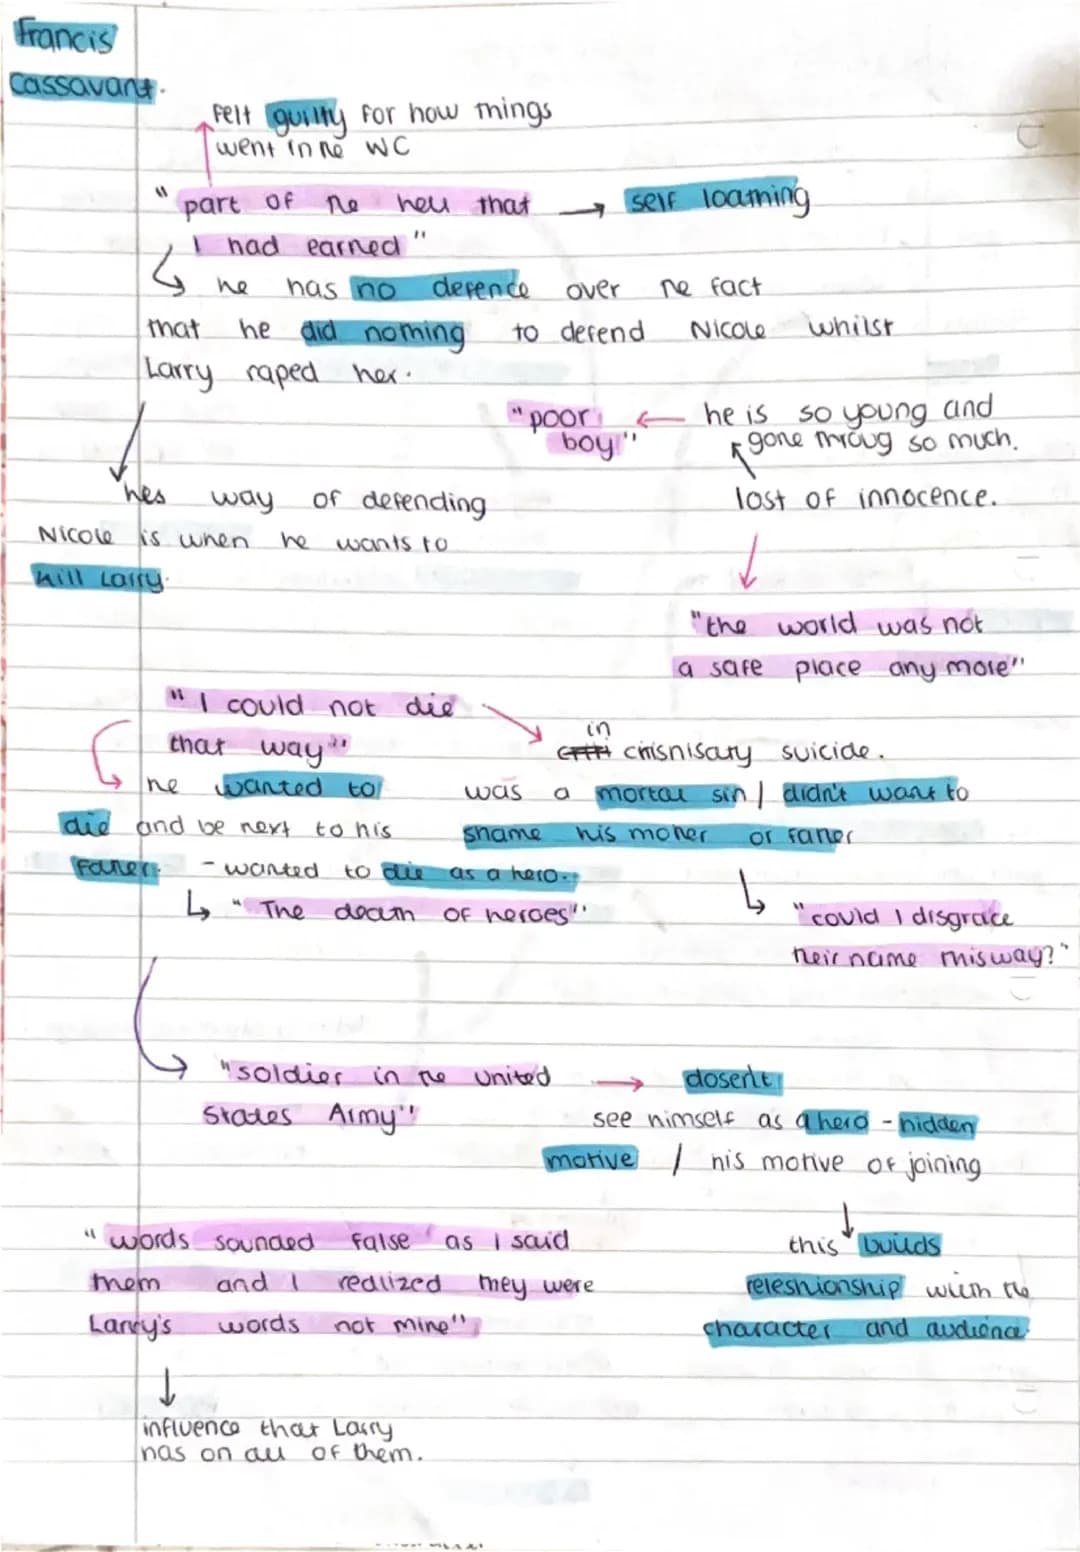 Francis
Cassavant.
Felt guilty for how things
went in the WC
"part of the hell that → self loathing
I had earned"
he has no defence over the fact
that he did nothing to defend Nicole whilst
Larry raped her.
"poor ← he is so young and
boy" gone throug so much.
hes way of defending lost of innocence.
Nicole is when he wants to
kill Larry.
"the world was not
a safe place any more"
"I could not die
that way" in chisnisary suicide.
he wanted to was a mortal sin / didn't want to
die and be next to his shame his mother or father
father. - wanted to die as a hero.
↳ "The death of heroes" ↳ "could I disgrace
their name this way?"
"soldier in the united → dosen't
States Army" see himself as a hero - hidden
motive / his motive of joining
"words sounded false as I said this builds
them and I realized they were releshionship with the
Larry's words not mine" character and audience.
influence that Larry
has on all of them.